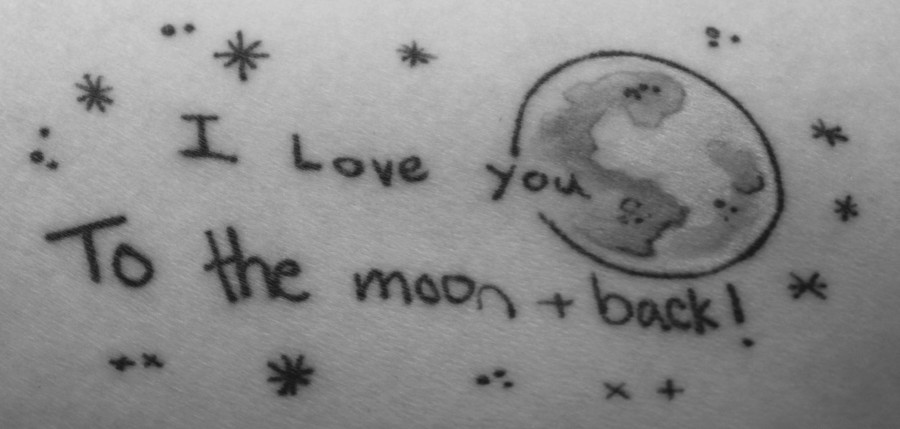 I Love you
To the moon + back!